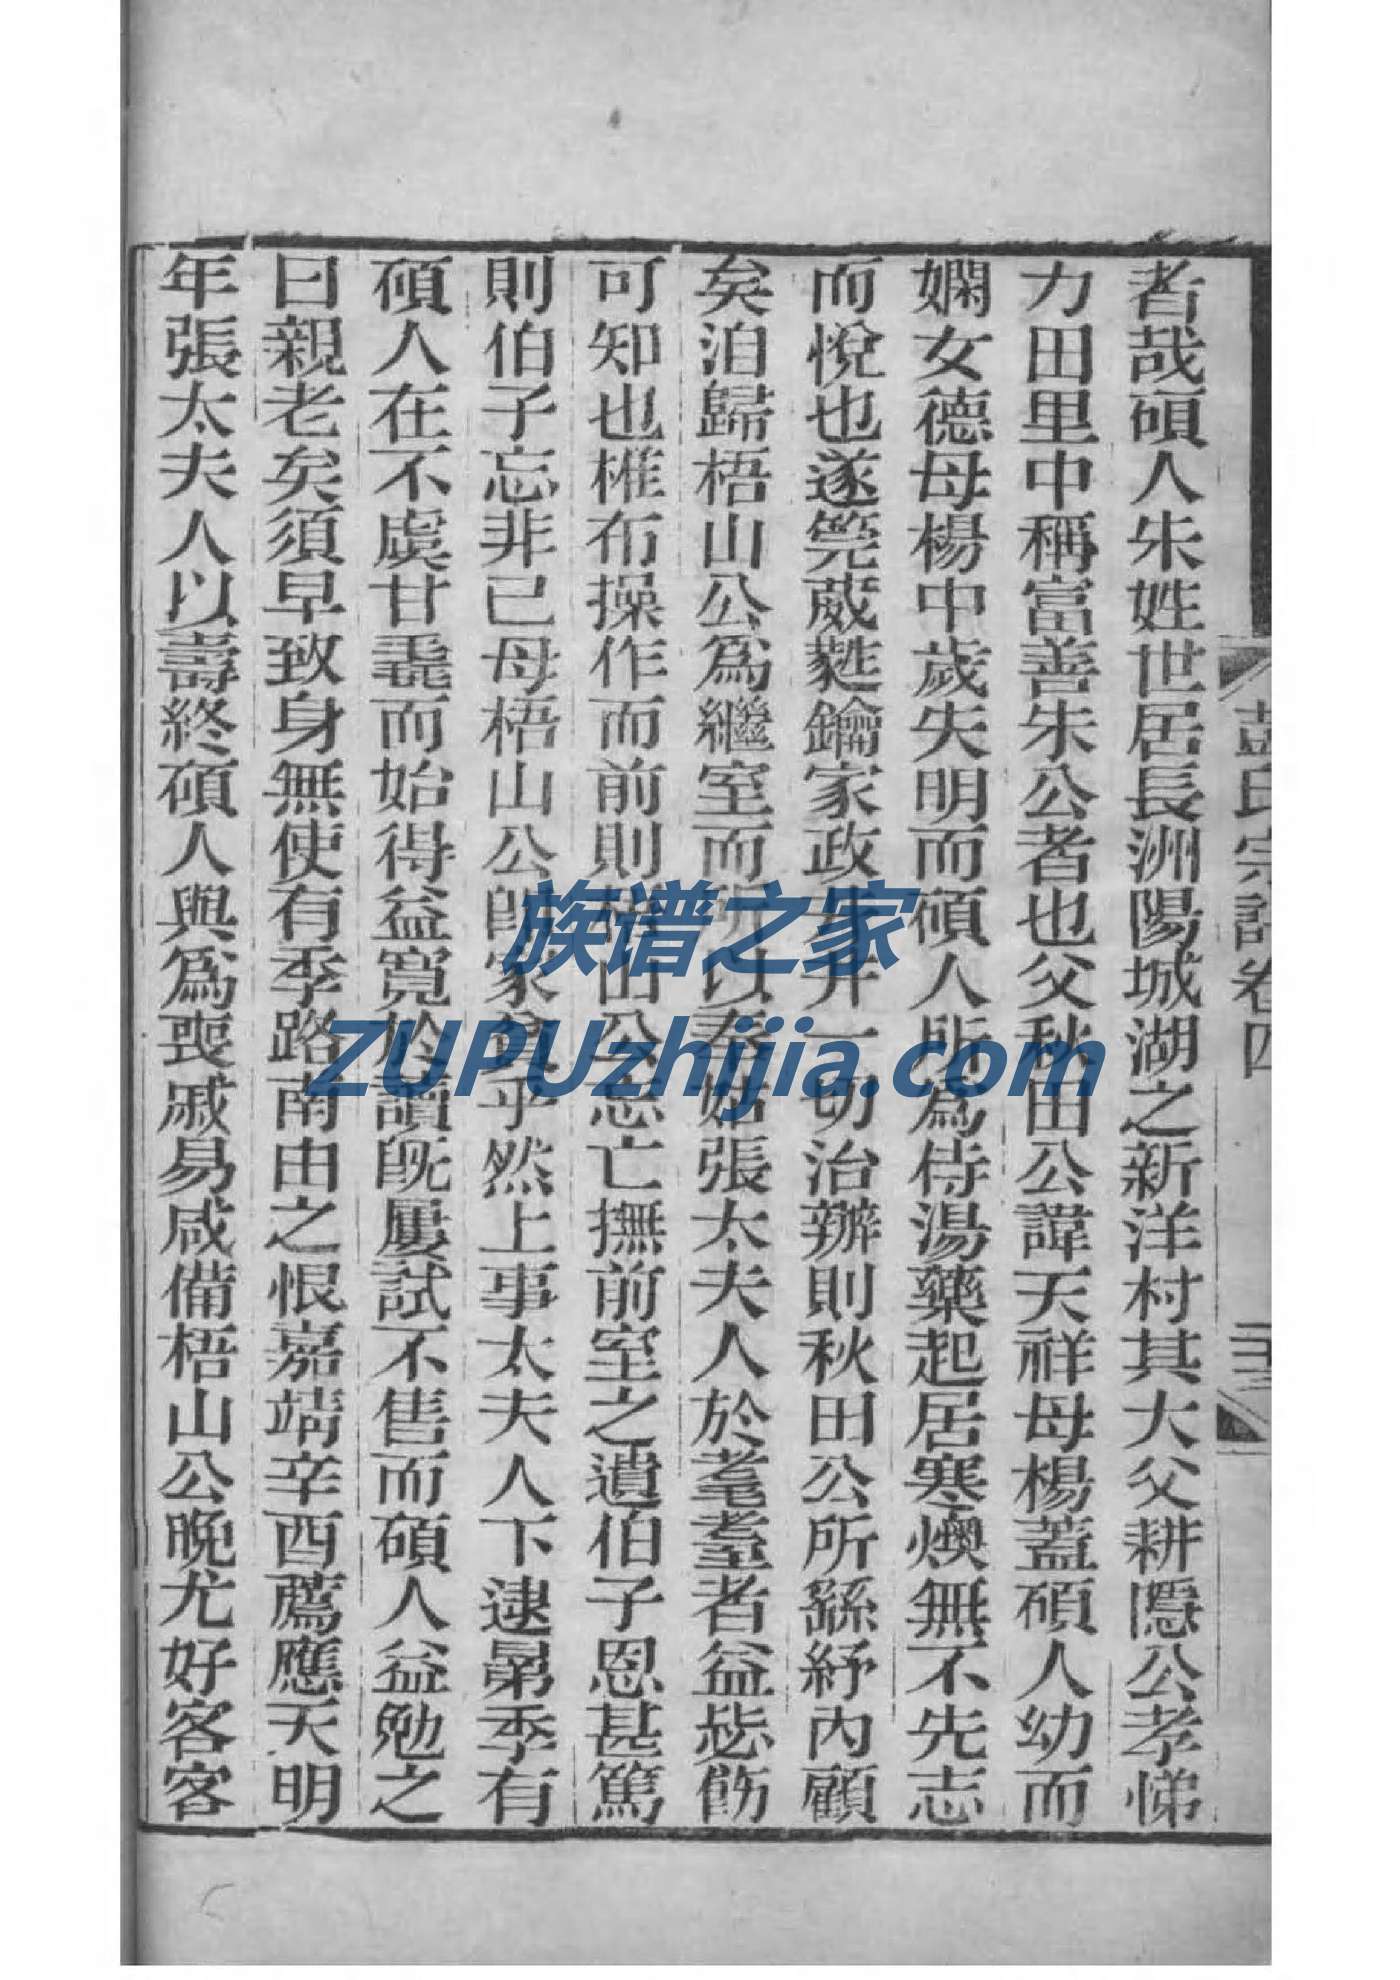 彭氏宗譜卷四
者哉碩人朱姓世居長洲陽城湖之新洋村其大父耕隱公孝悌
力田里中稱富善朱公者也父秋田公諱天祥母楊蓋碩人幼而
嫻女德母楊中歲失明而碩人所為侍湯藥起居寒燠無不先志
而悅也遂筦葳蕤鑰家政井井一切治辦則秋田公所繇紓內顧
矣洎歸梧山公為繼室而所以奉姑張太夫人於耄耋者益毖飭
可知也椎布操作而前則梧山公忘亡撫前室之遺伯子恩甚篤
則伯子忘非己母梧山公即家貧乎然上事太夫人下逮弟季有
碩人在不虞甘毳而始得益寬於讀既屢試不售而碩人益勉之
曰親老矣須早致身無使有季路南由之恨嘉靖辛酉薦應天明
年張太夫人以壽終碩人與為喪戚易咸備梧山公晚尤好客客
族谱之家
ZUPUzhijia.com